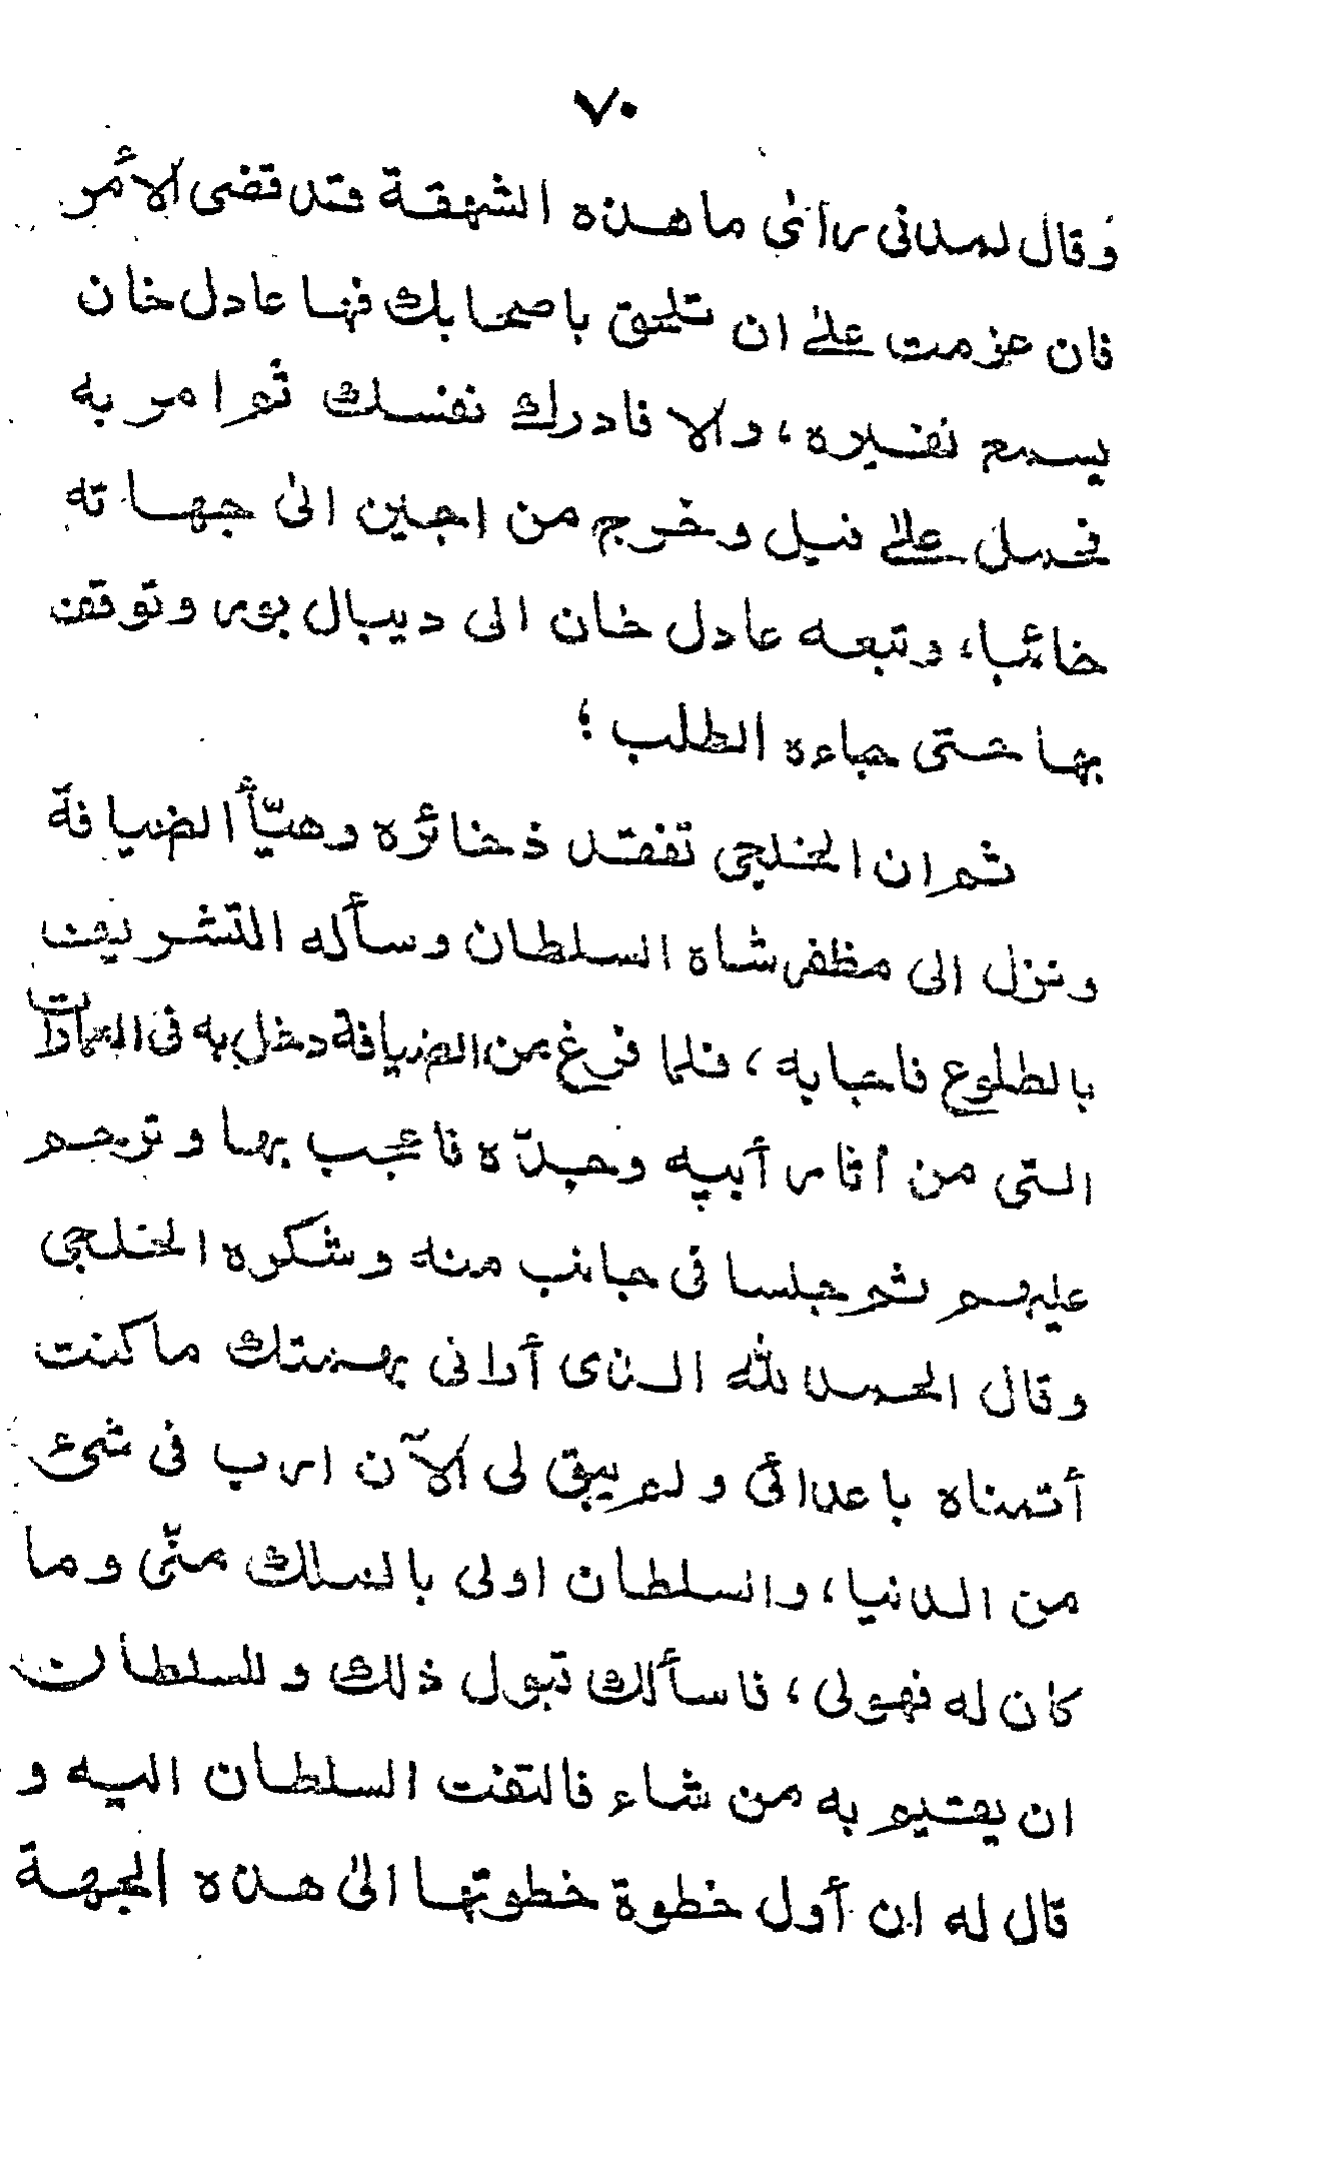 ٧٠
وقال لمدنی رائ ما هذه الشهقة قد قضی الأمر
فان عزمت علیٰ ان تلحق باصحابك فهنا عادل خان
یسمع نفیره، والا فادرك نفسك ثم امر به
فحمل علیٰ فیل وخرج من اجین الیٰ جهاته
خائبا، وتبعه عادل خان الی دیبال بور وتوقف
بها حتی جاءه الطلب؛
ثم ان الخلجی تفقد ذخائره وهیّأ الضیافة
ونزل الی مظفر شاه السلطان وسأله التشریف
بالطلوع فاجابه، فلما فرغ من الضیافة دخل به فی العمارات
التی من اثار أبیه وجدّه فاعجب بها وترحم
علیهم ثم جلسا فی جانب منه وشکره الخلجی
وقال الحمد لله الذی أرانی بهمتك ما کنت
أتمناه باعدائی ولم یبق لی الآن ارب فی شیٔ
من الدنیا، والسلطان اولی بالملك منّی وما
کان له فهولی، فاسألك قبول ذلك وللسلطان
ان یقیم به من شاء فالتفت السلطان الیه و
قال له ان أول خطوة خطوتها الیٰ هذه الجهة